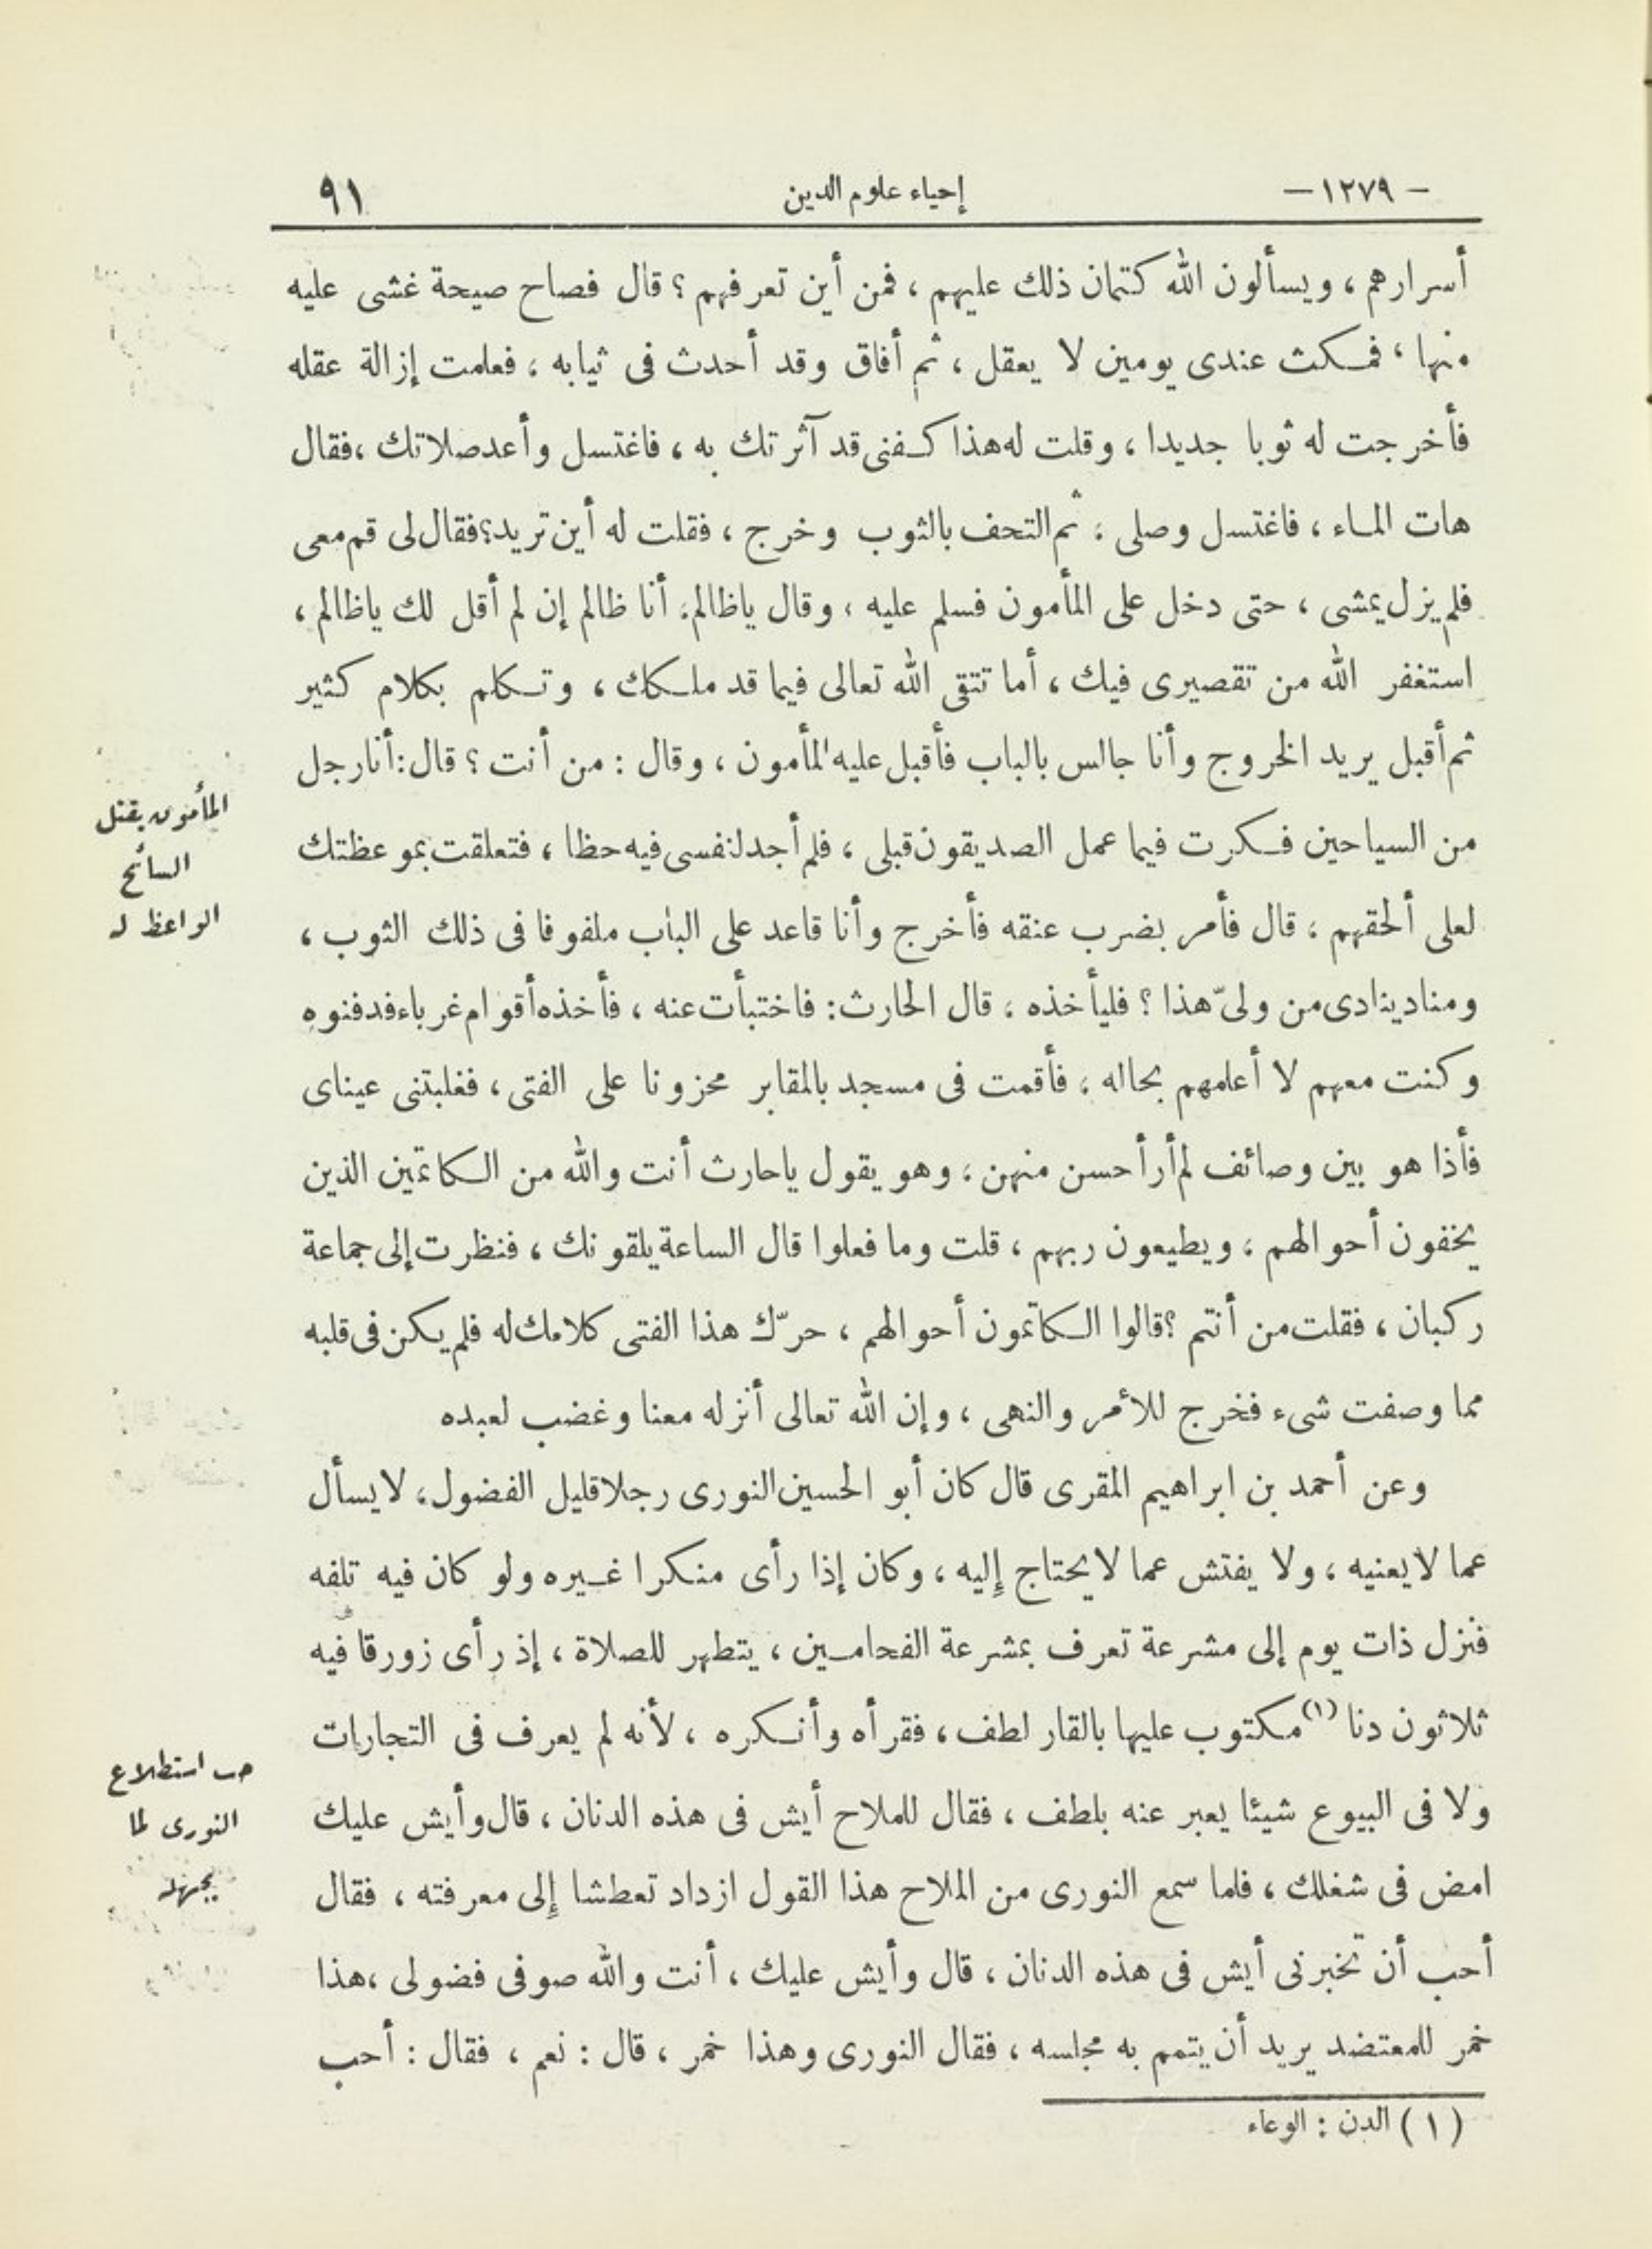 - ١٢٧٩ -
إحياء علوم الدين
٩١
أسرارهم ، ويسألون الله كتمان ذلك عليهم ، فمن أين تعرفهم ؟ قال فصاح صيحة غشى عليه
منها ، فمكث عندى يومين لا يعقل ، ثم أفاق وقد أحدث فى ثيابه ، فعلمت إزالة عقله
فأخرجت له ثوبا جديدا ، وقلت له هذا كفنى قد آثرتك به ، فاغتسل وأعد صلاتك ، فقال
هات الماء ، فاغتسل وصلى ، ثم التحف بالثوب وخرج ، فقلت له أين تريد؟ فقال لى قم معى
فلم يزل يمشى ، حتى دخل على المأمون فسلم عليه ، وقال ياظالم، أنا ظالم إن لم أقل لك ياظالم ،
استغفر الله من تقصيرى فيك ، أما تتقى الله تعالى فيما قد ملكك ، وتكلم بكلام كثير
ثم أقبل يريد الخروج وأنا جالس بالباب فأقبل عليه المأمون ، وقال : من أنت ؟ قال : أنا رجل
من السياحين فكرت فيما عمل الصديقون قبلى ، فلم أجد لنفسى فيه حظا ، فتعلقت بموعظتك
لعلى ألحقهم ، قال فأمر بضرب عنقه فأخرج وأنا قاعد على الباب ملفوفا فى ذلك الثوب ،
ومناد ينادى من ولىّ هذا ؟ فليأخذه ، قال الحارث: فاختبأت عنه ، فأخذه أقوام غرباء فدفنوه
وكنت معهم لا أعلمهم بحاله ، فأقمت فى مسجد بالمقابر محزونا على الفتى ، فغلبتنى عيناى
فأذا هو بين وصائف لم أر أحسن منهن ، وهو يقول ياحارث أنت والله من الكاتمين الذين
يخفون أحوالهم ، ويطيعون ربهم ، قلت وما فعلوا قال الساعة يلقونك ، فنظرت إلى جماعة
ركبان ، فقلت من أنتم ؟ قالوا الكاتمون أحوالهم ، حرّك هذا الفتى كلامك له فلم يكن فى قلبه
مما وصفت شىء فخرج للأمر والنهى ، وإن الله تعالى أنزله معنا وغضب لعبده
وعن أحمد بن ابراهيم المقرى قال كان أبو الحسين النورى رجلا قليل الفضول، لايسأل
عما لايعنيه ، ولا يفتش عما لايحتاج إليه ، وكان إذا رأى منكرا غيره ولو كان فيه تلفه
فنزل ذات يوم إلى مشرعة تعرف بمشرعة الفحامين ، يتطهر للصلاة ، إذ رأى زورقا فيه
ثلاثون دنا (١) مكتوب عليها بالقار لطف ، فقرأه وأنكره ، لأنه لم يعرف فى التجارات
ولا فى البيوع شيئا يعبر عنه بلطف ، فقال للملاح أيش فى هذه الدنان ، قال وأيش عليك
امض فى شغلك ، فلما سمع النورى من الملاح هذا القول ازداد تعطشا إلى معرفته ، فقال
أحب أن تخبرنى أيش فى هذه الدنان ، قال وأيش عليك ، أنت والله صوفى فضولى ، هذا
خمر للمعتضد يريد أن يتمم به مجلسه ، فقال النورى وهذا خمر ، قال : نعم ، فقال : أحب
( ١ ) الدن : الوعاء
المأمون يقتل
السائح
الواعظ له
حب استطلاع
النورى لما
يجهله